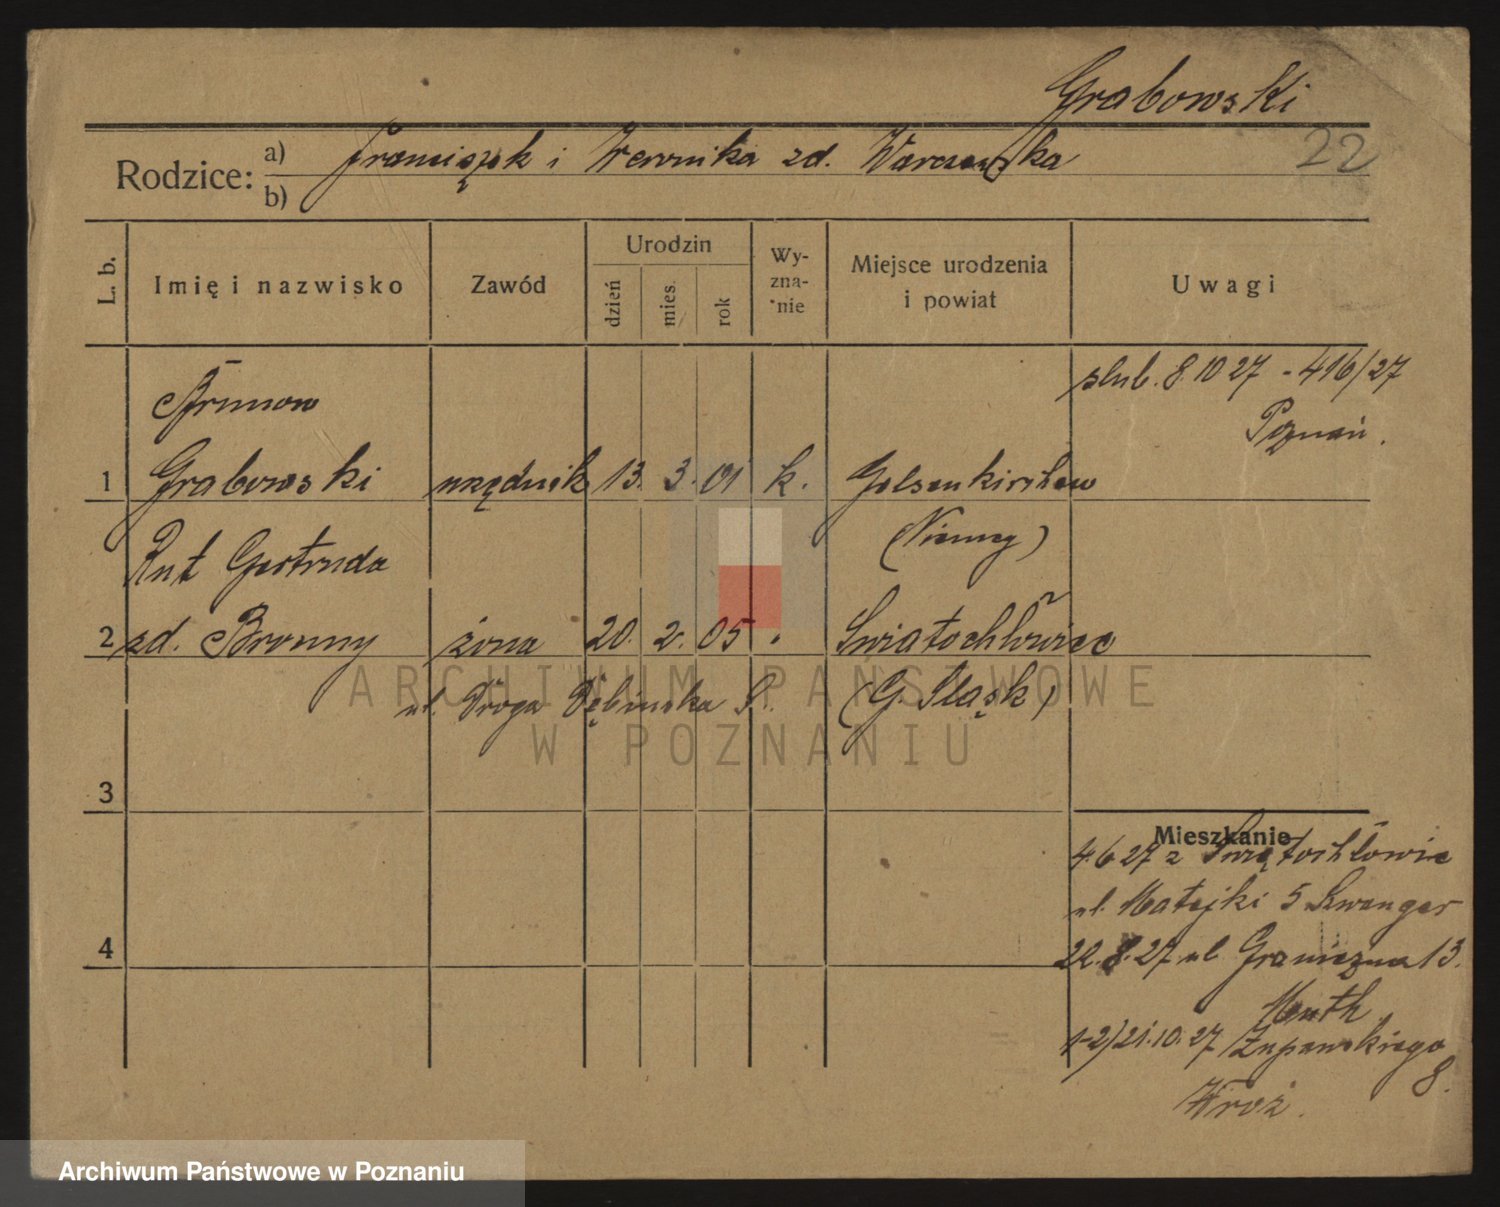 Grabowski
22
Rodzice: a) Franciszek i Weronika zd. Warczewska
b)
L. b. Imię i nazwisko Zawód Urodzin dzień mies. rok Wy-zna-nie Miejsce urodzenia i powiat Uwagi
ślub. 8.10 27 - 416/27
Poznań.
Brunon
1 Grabowski urzędnik 13. 3. 01 k. Gelsenkirchen
(Niemcy)
Rut Gertruda
2 zd. Bronny żona 20. 2. 05 " Świętochłowice
ul. Droga Dębińska (G. Śląsk)
3
Mieszkanie
4.6 27 z Świętochłowic
ul. Matejki 5 Szwanger
4
22.8.27 ul Graniczna 13.
Muth
1-2) 21.10.27 Żupańskiego
8.
ARCHIWUM PAŃSTWOWE
W POZNANIU
Archiwum Państwowe w Poznaniu